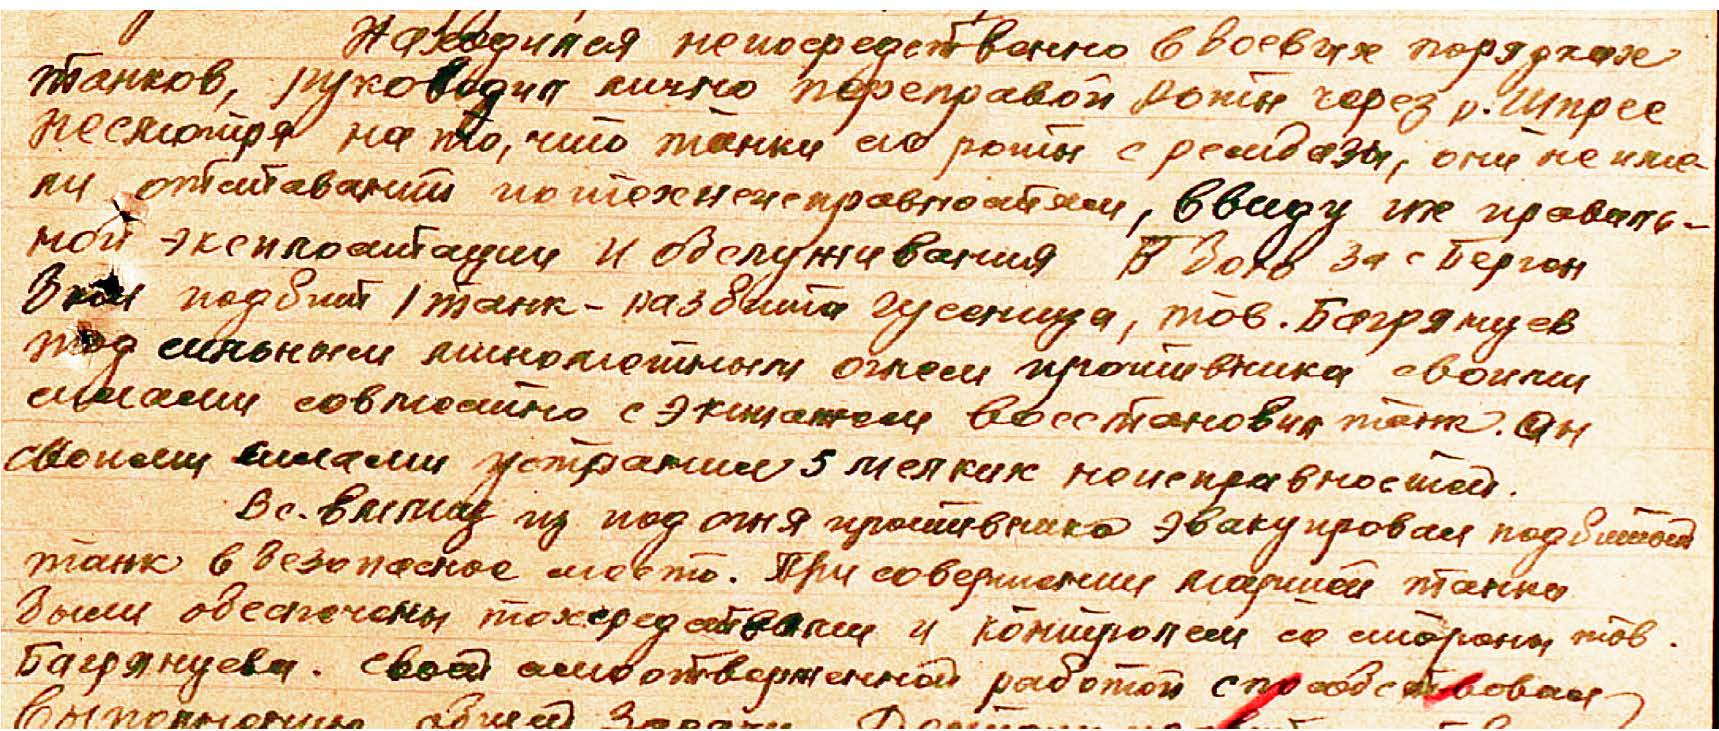 Находился непосредственно в боевых порядках
танков, руководил лично переправой роты через р. Шпрее
несмотря на то, что танки его роты с рембазы, они не име-
ли отставаний по техненеисправностям, ввиду их праваль-
ной эксплоатации и обслуживания В бою за с Берген
был подбит 1 танк - разбита гусеница, тов. Багрянцев
под сильным минометным огнем противника своими
силами совместно с экипажем восстановил танк. Он
своими силами устранил 5 мелких неисправностей.
В с. из под огня противника эвакуировал подбитый
танк в безопасное место. При совершении маршей танки
были обеспечены техсредствами и контролем со стороны тов.
Багрянцева. Своей самоотверженной работой способствовал
выполнению общей задачи.